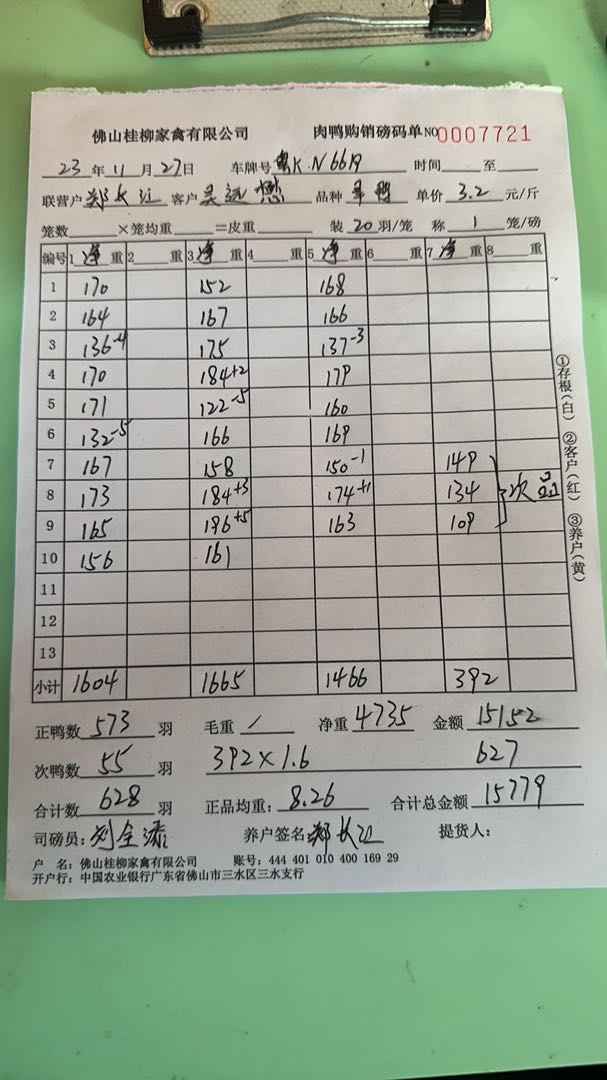 佛山桂柳家禽有限公司 肉鸭购销磅码单 NO 0007721
23 年 11 月 27 日 车牌号 粤K.N6619 时间 至
联营户 郑长江 客户 吴远懋 品种 单价 3.2 元/斤
笼数 ×笼均重 =皮重 装 20 羽/笼 称 1 笼/磅
编号 1 净 重 2 重 3 净 重 4 重 5 净 重 6 重 7 净 重 8 重
1 170 152 168
2 164 167 166
3 136-4 175 137-3
4 170 184+2 179
5 171 122-5 160
6 132-5 166 169
7 167 158 150-1 149
8 173 184+3 174+1 134 次品
9 165 196+5 163 109
10 156 161
11
12
13
小计 1604 1665 1466 392
正鸭数 573 羽 毛重 / 净重 4735 金额 15152
次鸭数 55 羽 392×1.6 627
合计数 628 羽 正品均重: 8.26 合计总金额 15779
司磅员: 刘全添 养户签名 郑长江 提货人:
户 名: 佛山桂柳家禽有限公司 账号: 444 401 010 400 169 29
开户行: 中国农业银行广东省佛山市三水区三水支行
①存根(白) ②客户(红) ③养户(黄)